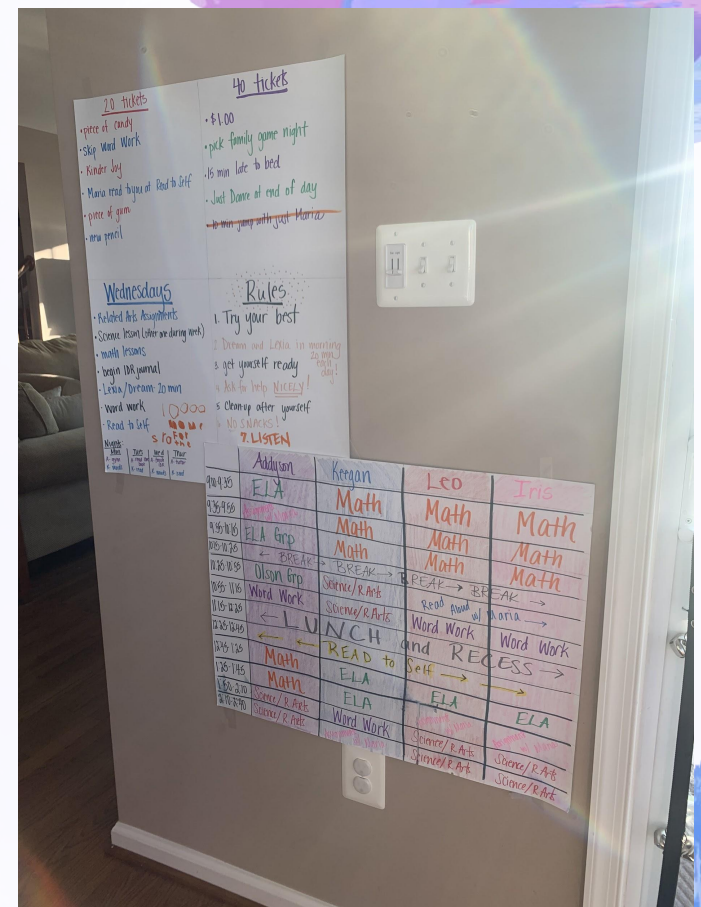 20 tickets
• piece of candy
• skip Word Work
• Kinder Joy
• Maria read to you at Read to Self
• piece of gum
• new pencil
40 tickets
• $1.00
• pick family game night
• 15 min late to bed
• Just Dance at end of day
• 10 min jump with just Maria
Wednesdays
• Related Arts Assignments
• Science lesson (other one during week)
• math lessons
• begin IDR journal
• Lexia/Dream: 20 min
• Word work
• Read to Self
Rules
1. Try your best
2. Dream and Lexia in morning
20 min each day!
3. get yourself ready
4. Ask for help NICELY!
5. clean up after yourself
6. NO SNACKS!
7. LISTEN
Addyson Keegan Leo Iris
9:00-9:35 ELA Math Math Math
9:35-9:55
9:55-10:15 ELA Grp Math Math Math
10:15-10:25 ← BREAK BREAK → BREAK → BREAK →
10:25-10:55 Olson Grp Science/R.Arts Read Aloud w/ Maria →
10:55-11:15 Word Work Science/R.Arts Word Work Word Work
11:15-12:25 ← LUNCH and RECESS →
12:25-12:45 ← ← READ to Self → →
12:45-1:25 Math ELA
1:25-1:45 Math ELA ELA ELA
Science/R.Arts Word Work Science/R.Arts Science/R.Arts
Science/R.Arts Science/R.Arts Science/R.Arts